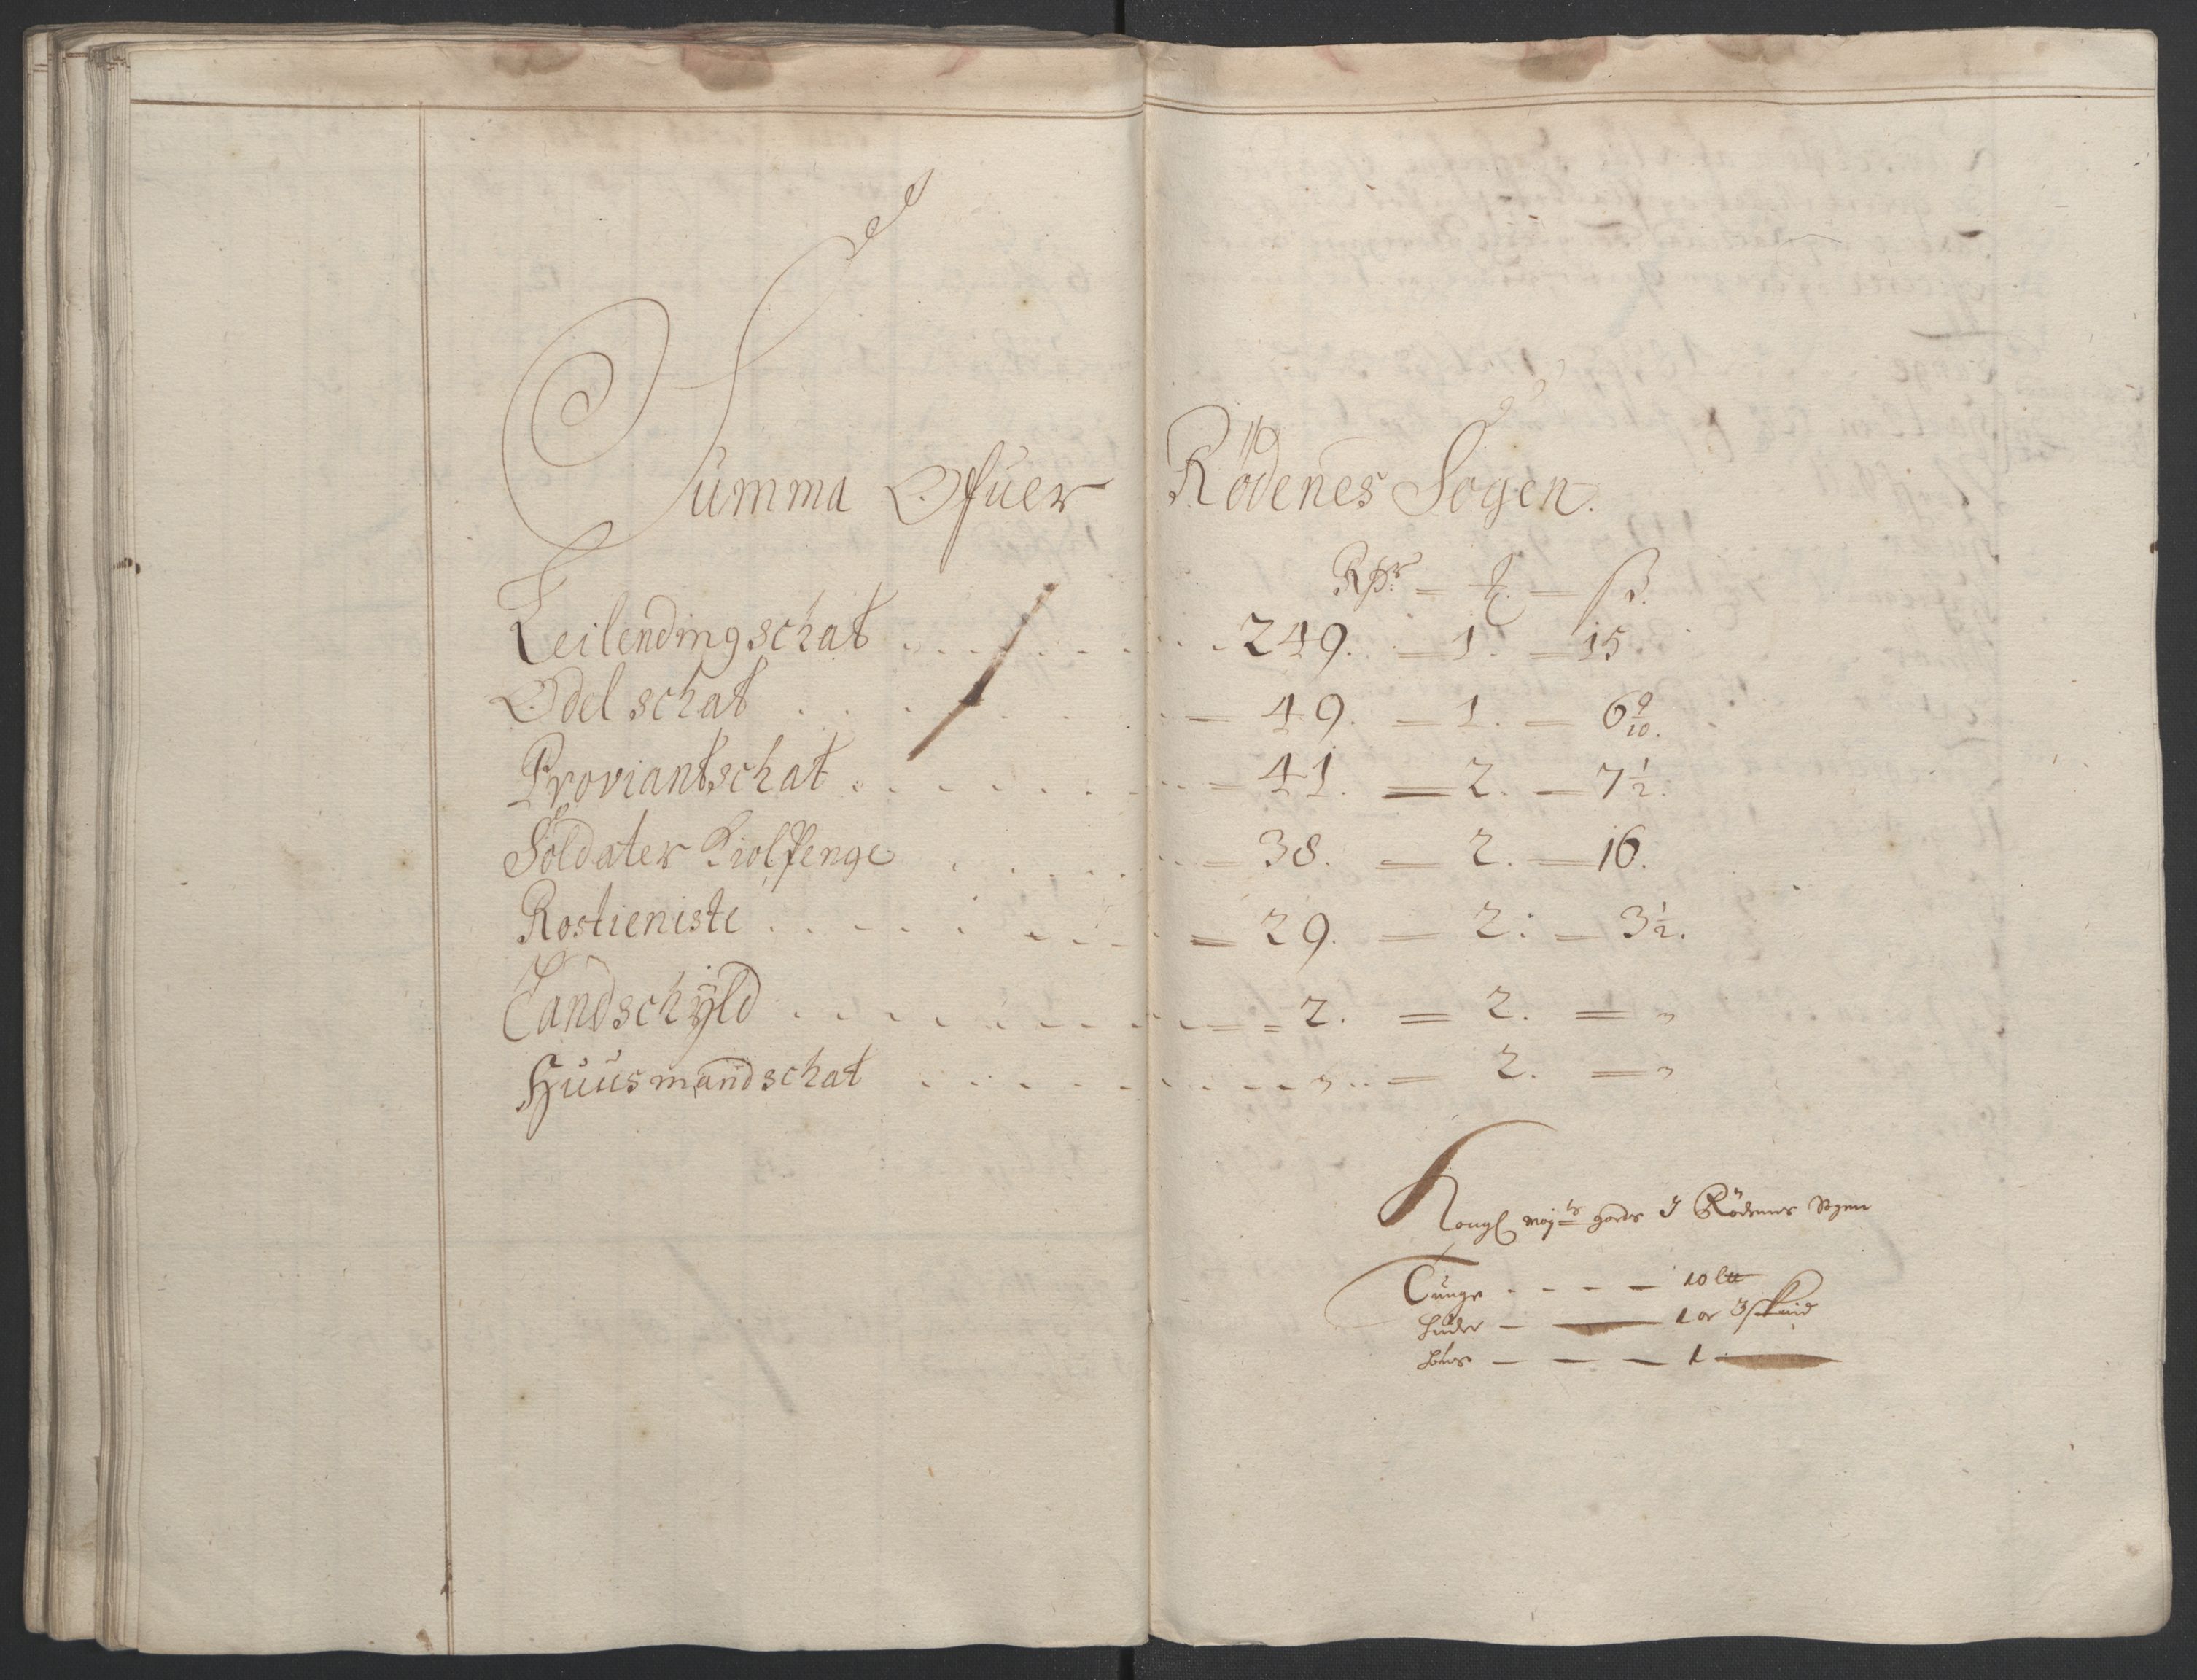 Summa Ofuer Rödenes Sogen.
Rdr = ƶ = ß.
Leilendingschat . . . . . . . . 249. = 1. = 15.
Odel schat . . . . . . . = 49. = 1. = 6 9/10.
Proviantschat . . . . . . . = 41. = 2. = 7 1/2.
Soldater Kiolpenge . . . . . = 38. = 2. = 16.
Rostieniste . . . . . . . . = 29. = 2: = 3 1/2.
Landschÿld . . . . . . . . . = 2. = 2. = "
Huusmandschat . . . . . . . . " . . = 2. = "
Kongl maj ts gaarde I Rödenes Sogen
Tunge - - - - 10 l℔
Huder - — 1 or 3 skind
Bόes - - - 1 —